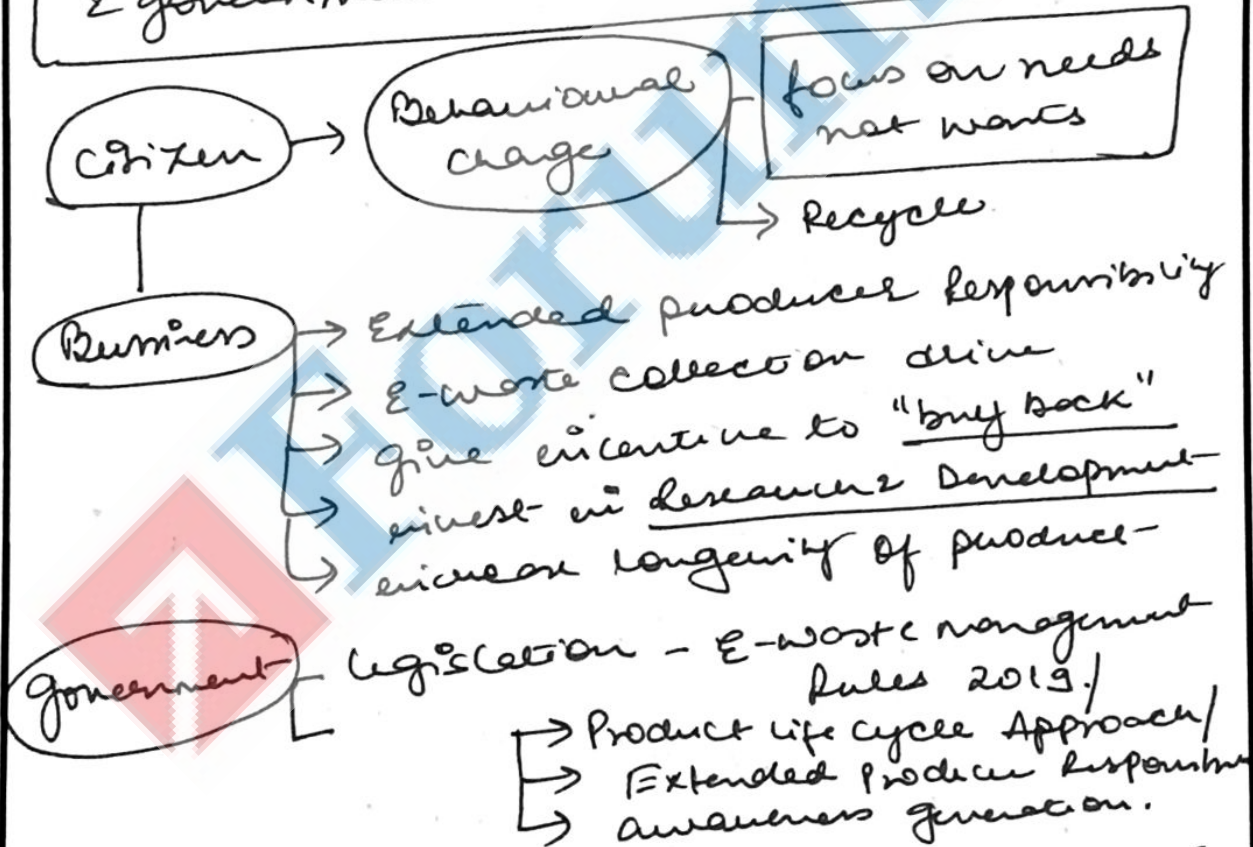 & govern
citizen → Behavioural change
focus on needs
not wants
→ Recycle
Business → Extended producer Responsibility
→ E-waste collection drive
→ give incentive to "buy back"
→ invest in Research & Development
→ increase longevity of product
Government - legislation - E-waste management
Rules 2019/
→ Product life cycle Approach/
→ Extended Producer
→ awareness generation.
Forum